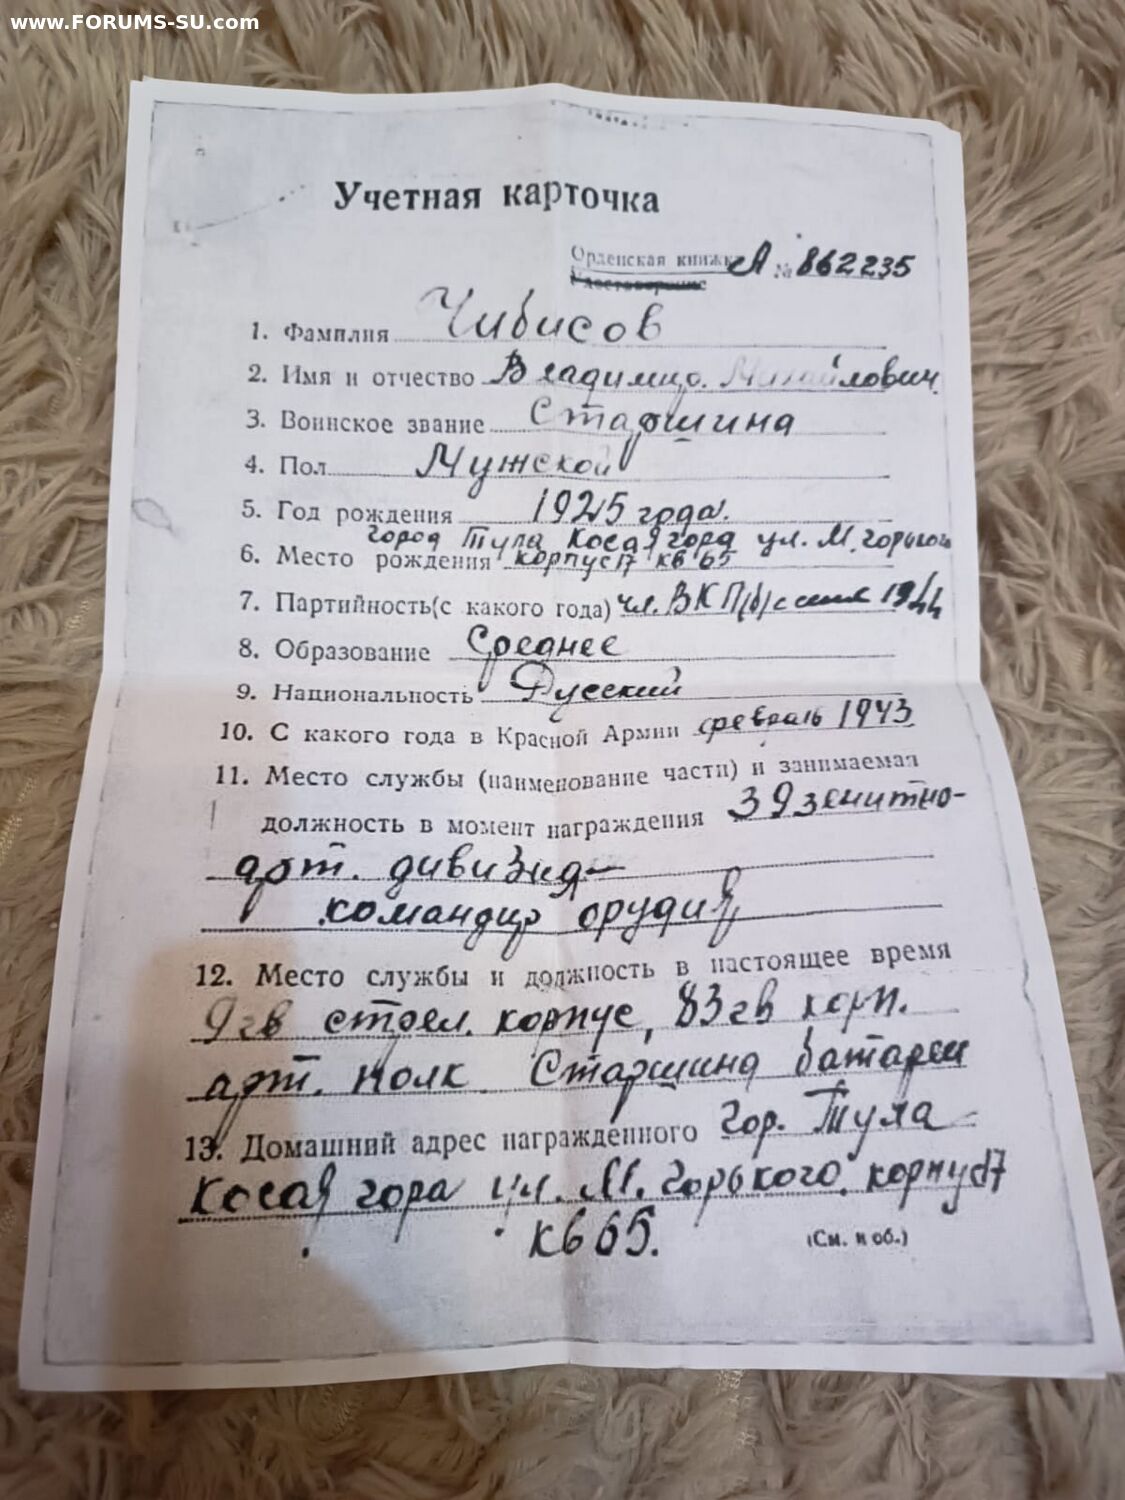 www.FORUMS-SU.com
Учетная карточка
Орденская книжка А № 862235
Удостоверение
1. Фамилия Чибисов
2. Имя и отчество Владимир. Михайлович
3. Воинское звание Старшина
4. Пол Мужской
5. Год рождения 1925 года.
город Тула Косая гора ул. М. Горького
6. Место рождения корпус 17 кв 65
7. Партийность(с какого года) чл. ВКП(б) с 1944
8. Образование Среднее
9. Национальность Русский
10. С какого года в Красной Армии февраль 1943
11. Место службы (наименование части) и занимаемая
должность в момент награждения 39 зенитно-
арт. дивизия
командир орудия
12. Место службы и должность в настоящее время
9 гв стрел. корпус, 83 гв корп.
арт. полк Старшина батареи
13. Домашний адрес награжденного Гор. Тула
Косая гора ул. М. Горького. корпус 17
кв 65.
(См. н об.)